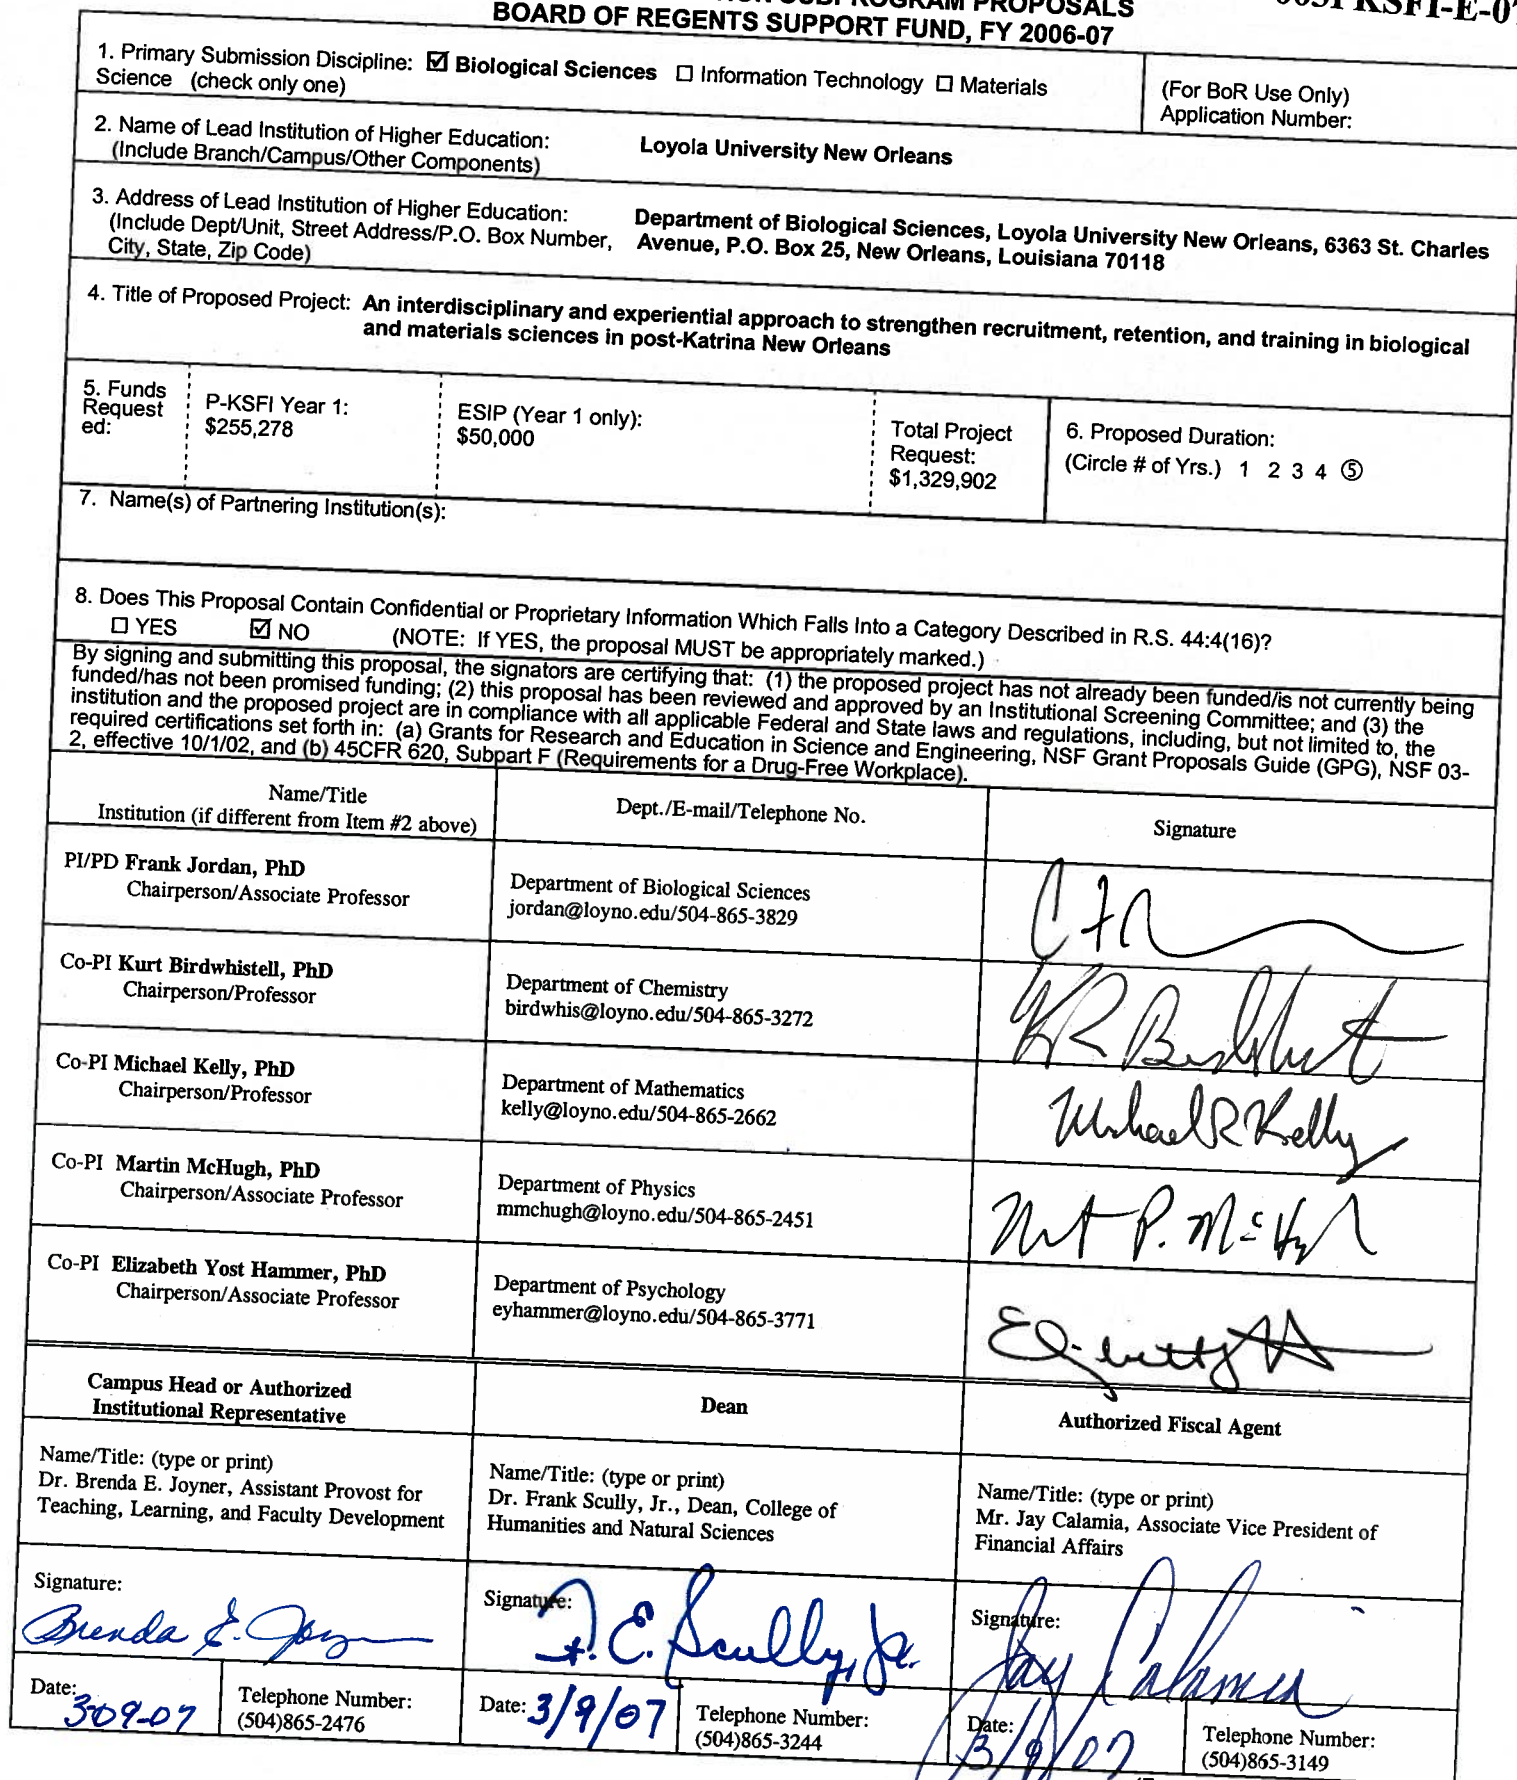 PROPOSALS
BOARD OF REGENTS SUPPORT FUND, FY 2006-07
1. Primary Submission Discipline: ☑ Biological Sciences ☐ Information Technology ☐ Materials
Science (check only one)
(For BoR Use Only)
Application Number:
2. Name of Lead Institution of Higher Education:
(Include Branch/Campus/Other Components)
Loyola University New Orleans
3. Address of Lead Institution of Higher Education:
(Include Dept/Unit, Street Address/P.O. Box Number,
City, State, Zip Code)
Department of Biological Sciences, Loyola University New Orleans, 6363 St. Charles
Avenue, P.O. Box 25, New Orleans, Louisiana 70118
4. Title of Proposed Project: An interdisciplinary and experiential approach to strengthen recruitment, retention, and training in biological
and materials sciences in post-Katrina New Orleans
5. Funds
Request
ed:
P-KSFI Year 1:
$255,278
ESIP (Year 1 only):
$50,000
Total Project
Request:
$1,329,902
6. Proposed Duration:
(Circle # of Yrs.) 1 2 3 4 ⑤
7. Name(s) of Partnering Institution(s):
8. Does This Proposal Contain Confidential or Proprietary Information Which Falls Into a Category Described in R.S. 44:4(16)?
☐ YES ☑ NO (NOTE: If YES, the proposal MUST be appropriately marked.)
By signing and submitting this proposal, the signators are certifying that: (1) the proposed project has not already been funded/is not currently being
funded/has not been promised funding; (2) this proposal has been reviewed and approved by an Institutional Screening Committee; and (3) the
institution and the proposed project are in compliance with all applicable Federal and State laws and regulations, including, but not limited to, the
required certifications set forth in: (a) Grants for Research and Education in Science and Engineering, NSF Grant Proposals Guide (GPG), NSF 03-
2, effective 10/1/02, and (b) 45CFR 620, Subpart F (Requirements for a Drug-Free Workplace).
Name/Title
Institution (if different from Item #2 above)
Dept./E-mail/Telephone No.
Signature
PI/PD Frank Jordan, PhD
Chairperson/Associate Professor
Department of Biological Sciences
jordan@loyno.edu/504-865-3829
Co-PI Kurt Birdwhistell, PhD
Chairperson/Professor
Department of Chemistry
birdwhis@loyno.edu/504-865-3272
Co-PI Michael Kelly, PhD
Chairperson/Professor
Department of Mathematics
kelly@loyno.edu/504-865-2662
Michael R Kelly
Co-PI Martin McHugh, PhD
Chairperson/Associate Professor
Department of Physics
mmchugh@loyno.edu/504-865-2451
Co-PI Elizabeth Yost Hammer, PhD
Chairperson/Associate Professor
Department of Psychology
eyhammer@loyno.edu/504-865-3771
Campus Head or Authorized
Institutional Representative
Dean
Authorized Fiscal Agent
Name/Title: (type or print)
Dr. Brenda E. Joyner, Assistant Provost for
Teaching, Learning, and Faculty Development
Name/Title: (type or print)
Dr. Frank Scully, Jr., Dean, College of
Humanities and Natural Sciences
Name/Title: (type or print)
Mr. Jay Calamia, Associate Vice President of
Financial Affairs
Signature:
Brenda E.
Signature:
F. E. Scully, Jr.
Signature:
Jay Calamia
Date: 3-09-07
Telephone Number:
(504)865-2476
Date: 3/9/07
Telephone Number:
(504)865-3244
Date: 3/9/07
Telephone Number:
(504)865-3149